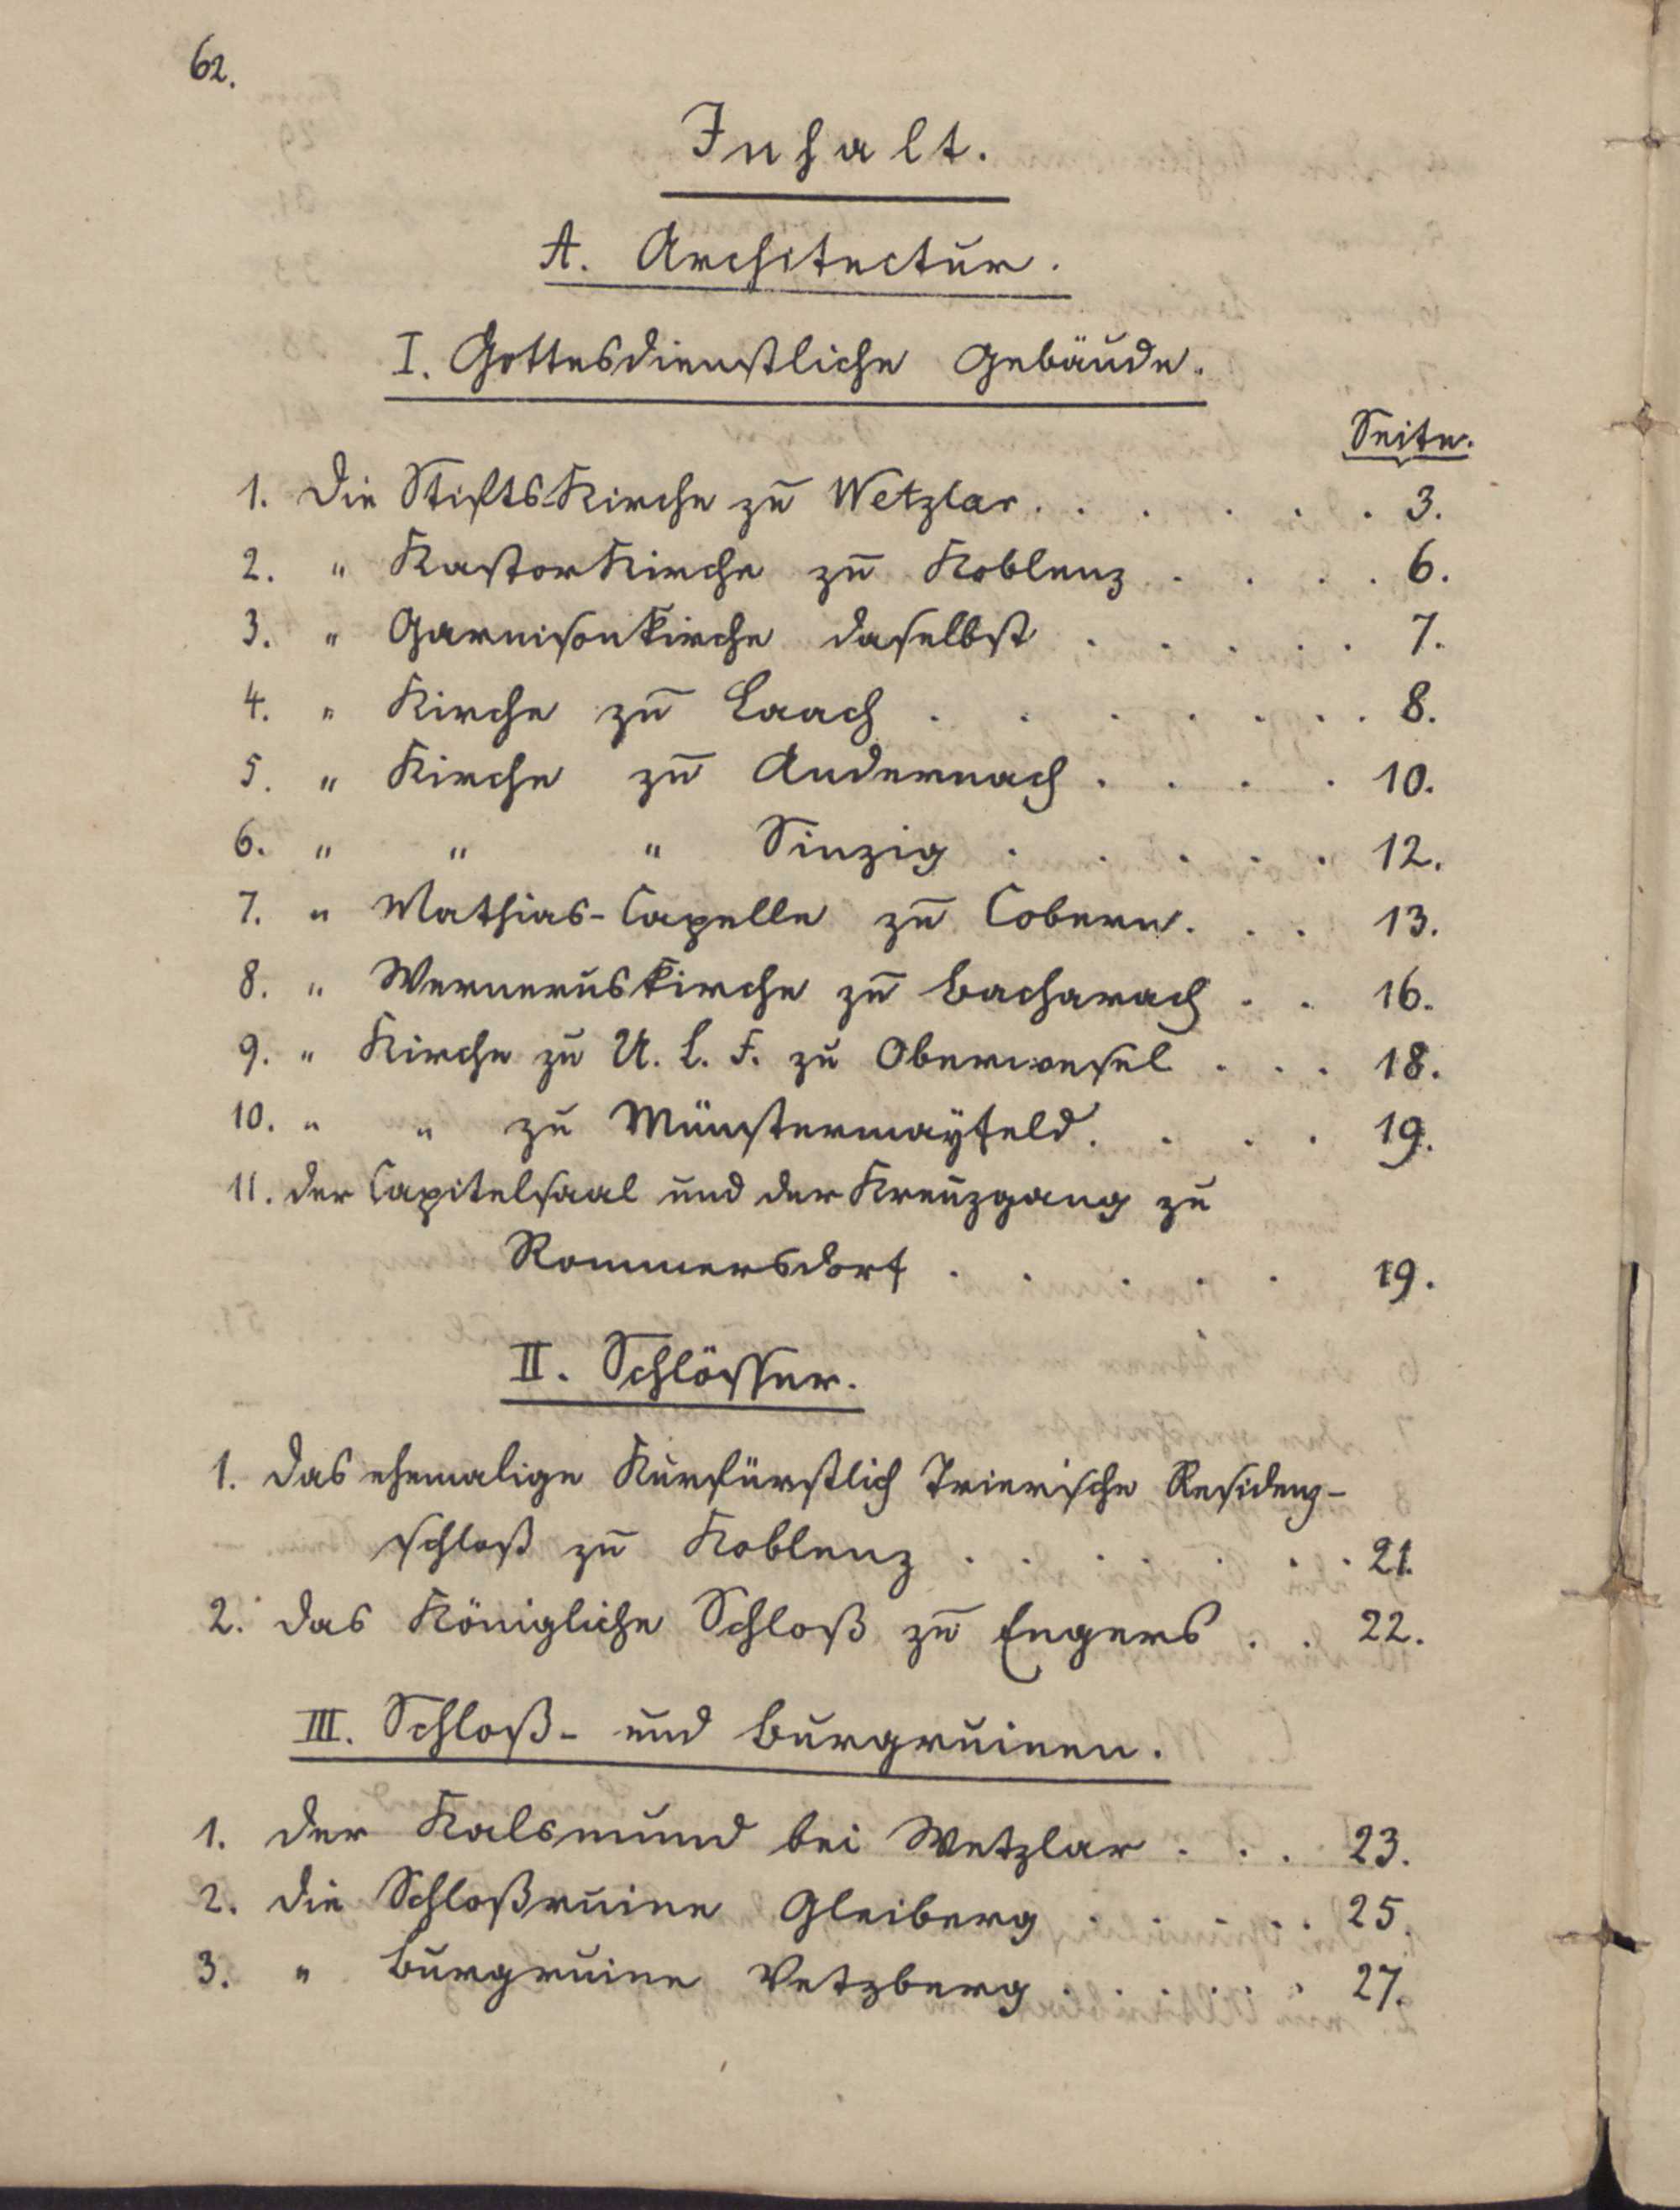 62.
Inhalt.
A. Architectur.
I. Gottesdienstliche Gebäude.
Seite.
1. Die Stiftskirche zu Wetzlar . . . . . . 3.
2. " Kastorkirche zu Koblenz . . . . 6.
3. " Garnisonkirche daselbst . . . . . 7.
4. " Kirche zu Laach . . . . . . . 8.
5. " Kirche zu Andernach . . . . 10.
6. " " " Sinzig . . . . . 12.
7. " Mathias-Capelle zu Cobern . . . 13.
8. " Werneruskirche zu Bacharach . . 16.
9. " Kirche zu U. L. F. zu Oberwesel . . . 18.
10. " " zu Münstermayfeld . . . . 19.
11. der Capitelsaal und der Kreuzgang zu
Rommersdorf . . . . . 19.
II. Schlösser.
1. das ehemalige Kurfürstlich Trierische Residenz-
schloß zu Koblenz . . . . . . 21.
2. das Königliche Schloß zu Engers . . 22.
III. Schloß- und Burgruinen.
1. der Kalsmund bei Wetzlar . . . 23.
2. die Schloßruine Gleiberg . . . . . 25.
3. " Burgruine Vetzberg . . . . . 27.